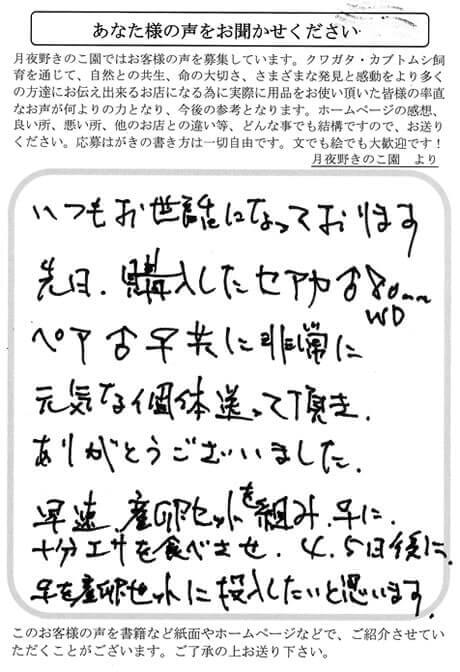 あなた様の声をお聞かせください
月夜野きのこ園ではお客様の声を募集しています。クワガタ・カブトムシ飼
育を通じて、自然との共生、命の大切さ、さまざまな発見と感動をより多く
の方達にお伝え出来るお店になる為に実際に用品をお使い頂いた皆様の率直
なお声が何よりの力となり、今後の参考となります。ホームページの感想、
良い所、悪い所、他のお店との違い等、どんな事でも結構ですので、お送り
ください。応募はがきの書き方は一切自由です。文でも絵でも大歓迎です！
月夜野きのこ園　より
いつもお世話になっております
先日、購入したセアカ♂80mm
WD
ペア♂♀共に非常に
元気な個体送って頂き、
ありがとうございました。
早速、産卵セットを組み、♀に、
十分エサを食べさせ、4、5日後に、
♀を産卵セットに投入したいと思います。
このお客様の声を書籍など紙面やホームページなどで、ご紹介させてい
ただくことがございます。ご了承の上お送り下さい。